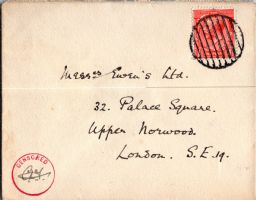 Messrs Ewen's Ltd.
32. Palace Square.
Upper Norwood.
London. S.E.19.
CENSORED